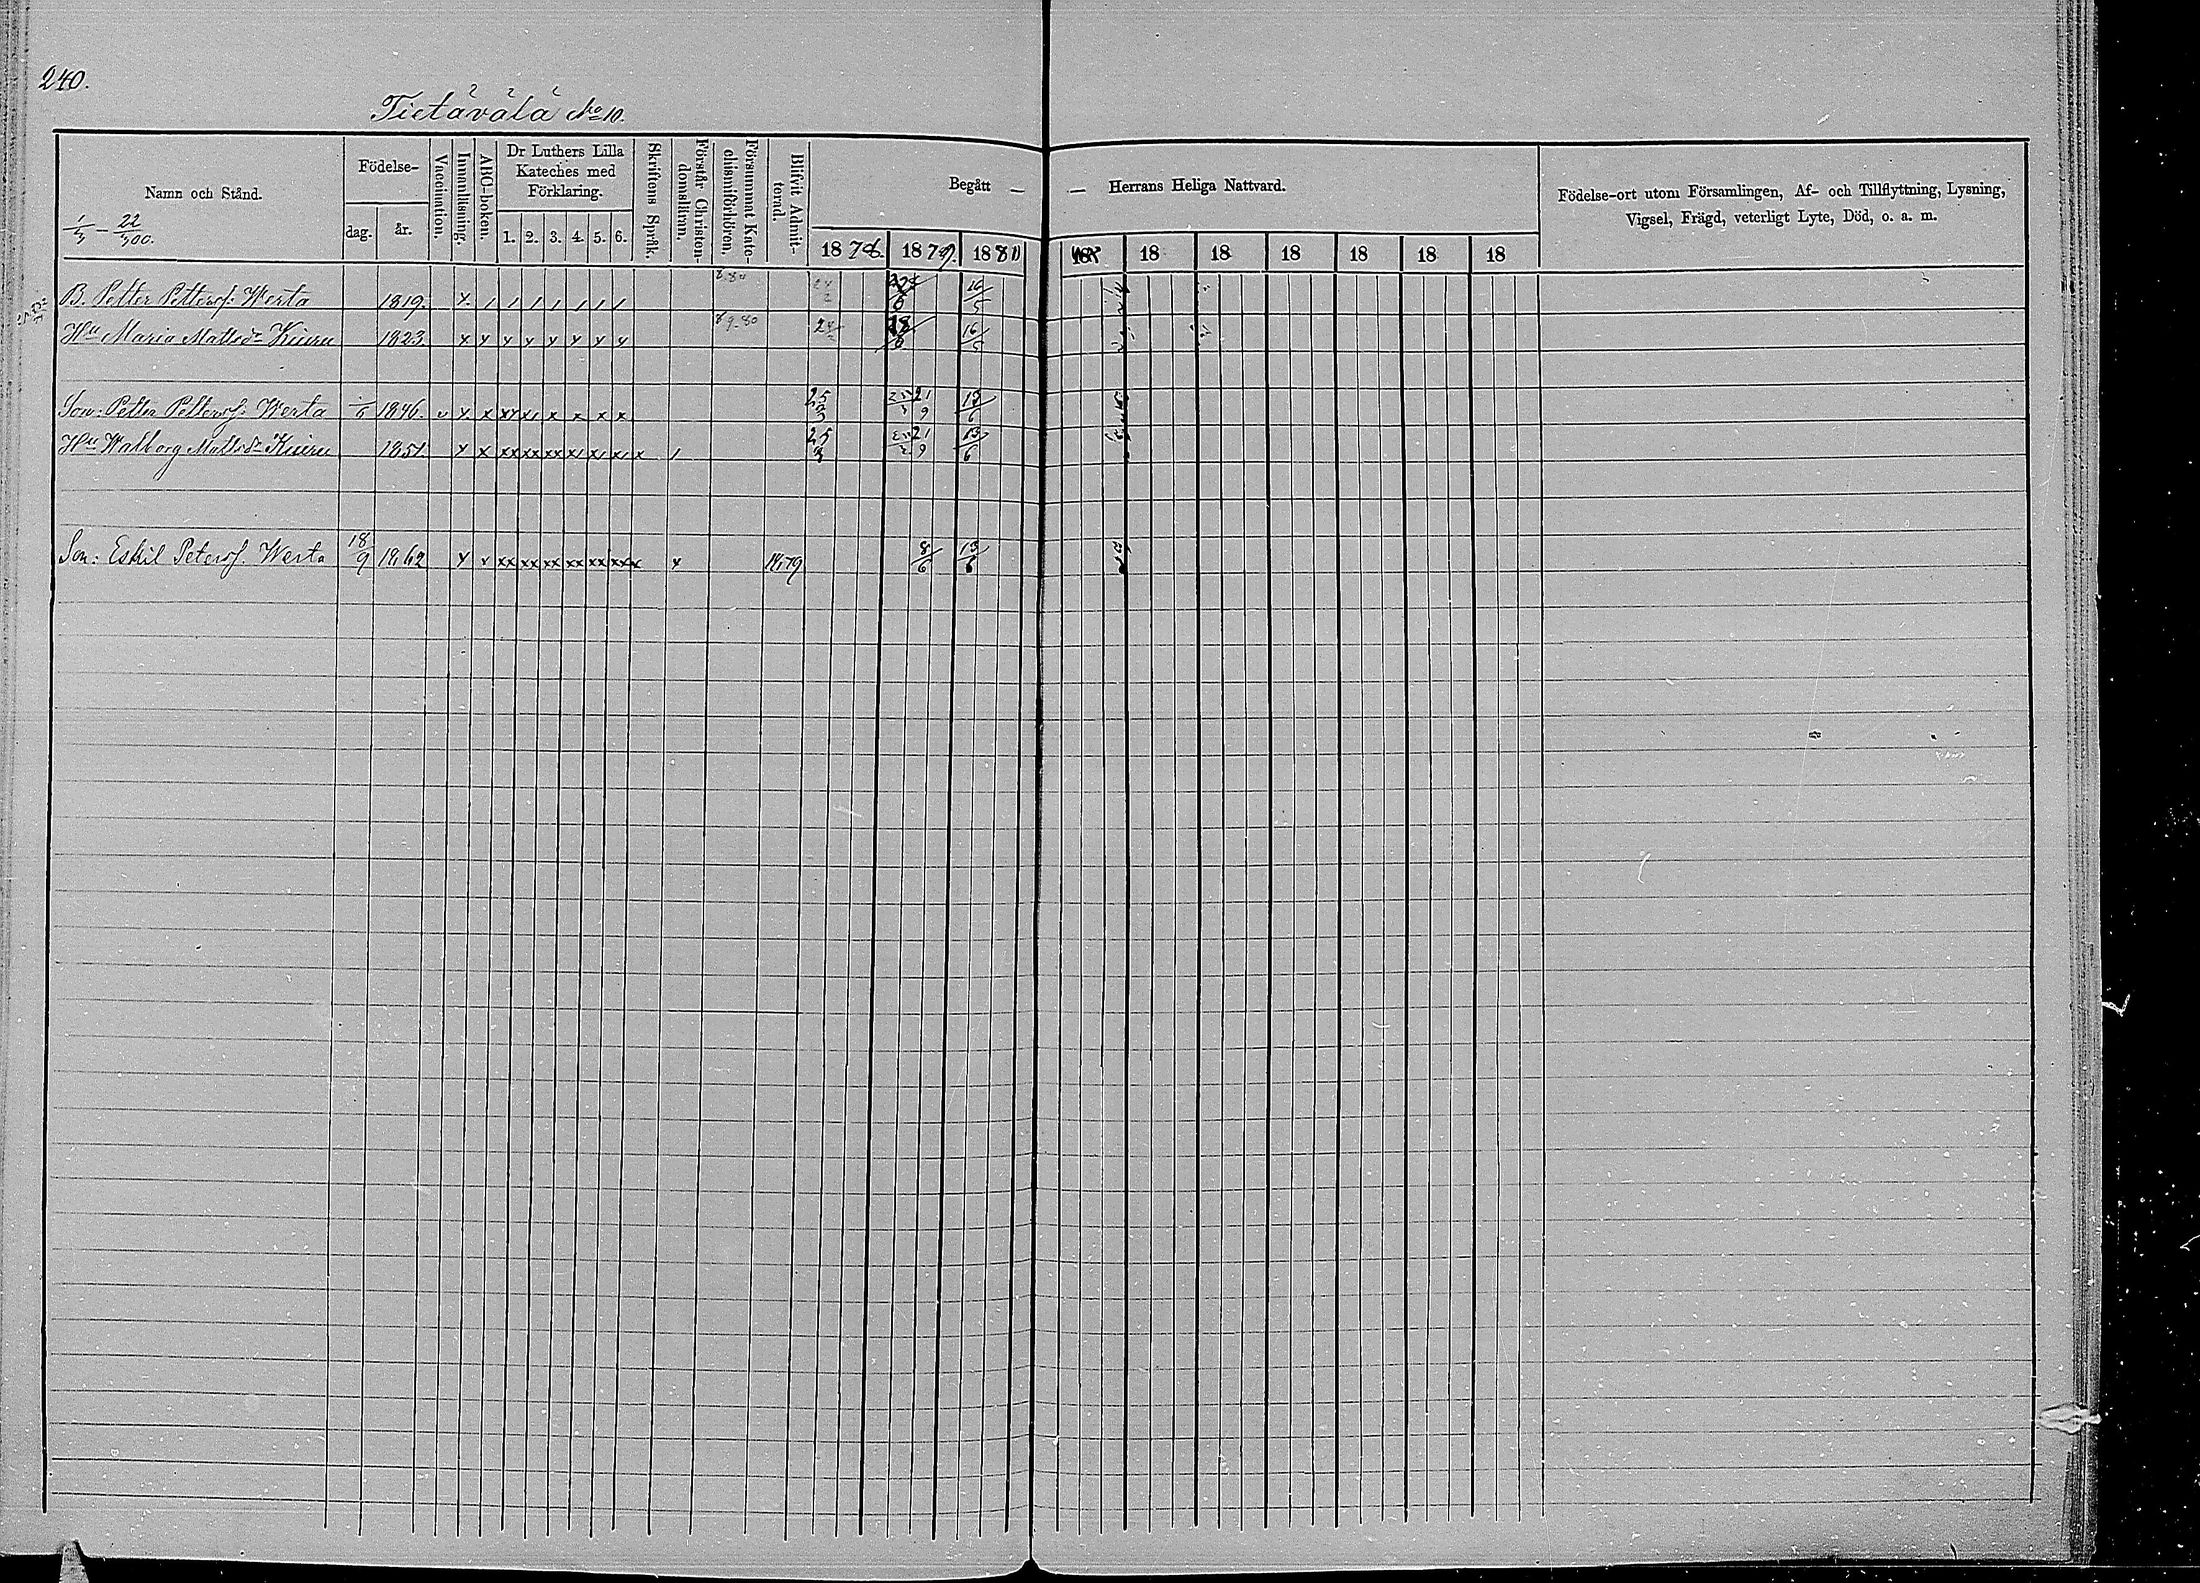 240.
Tietävälä No 10.
Namn och Stånd.
1/3 - 22/300.
Födelse-
dag.
år.
Vaccination.
Innanläsning.
ABC-boken.
Dr Luthers Lilla
Kateches med
Förklaring.
1. 2. 3. 4. 5. 6.
Skriftens Språk.
Förstår Christen-
domsläran.
Försummat Kate-
chismiförhören.
Blifvit Admit-
terad.
Begått — — Herrans Heliga Nattvard.
1878. 1879. 1880 18 18 18 18 18 18
Födelse-ort utom Församlingen, Af- och Tillflyttning, Lysning,
Vigsel, Frägd, veterligt Lyte, Död, o. a. m.
B. Petter Pettersf: Werta 1819. 16/5
Hu Maria Mattsdr Kiuru 1823. x x x x x x x x 16/5
Son: Petter Pettersf: Werta 1846. 25/3 21/6 13/6
Hu Walborg Mattsdr Kiuru 1851 25/3 21/6 13/6
Son: Eskil Petersf. Werta 18/9 1862 79 8/6 13/6